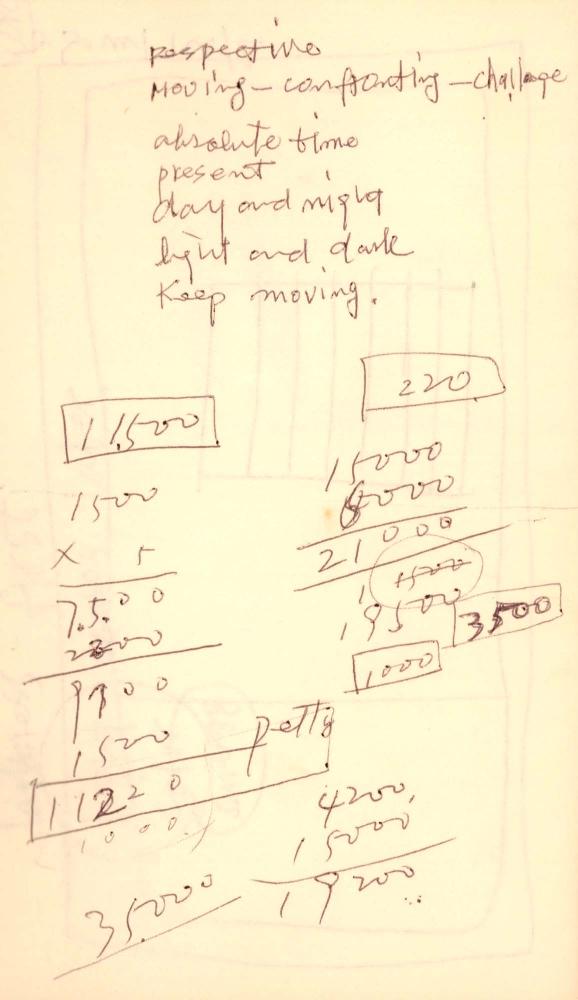 perspective
Moving - confronting - challage
absolute time
present
day and night
light and dark
Keep moving.
220
11,500
15000
6000
1500
21000
x 5
1500
7.5.00
19500
3500
2300
1000
9800
1520
petty
11220
1000
4200,
15000
19200
35000